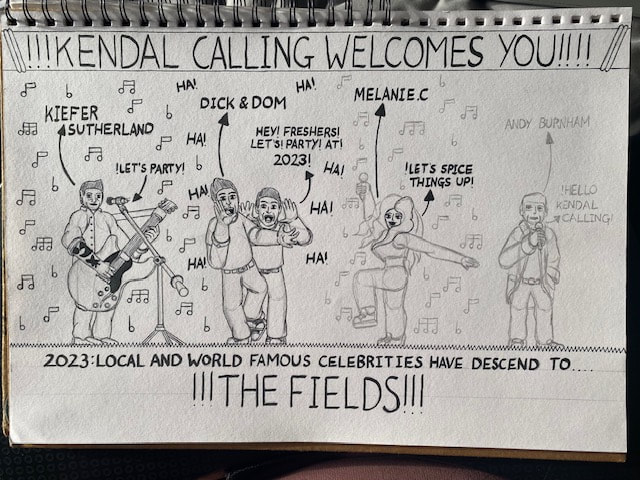 !!!KENDAL CALLING WELCOMES YOU!!!!
KIEFER
SUTHERLAND
!LET'S PARTY!
HA!
HA!
DICK & DOM
HEY! FRESHERS!
LET'S! PARTY! AT!
2023!
HA!
HA!
HA!
HA!
HA!
HA!
MELANIE.C
!LET'S SPICE
THINGS UP!
ANDY BURNHAM
!HELLO
KENDAL
CALLING!
2023: LOCAL AND WORLD FAMOUS CELEBRITIES HAVE DESCEND TO....
!!!THE FIELDS!!!